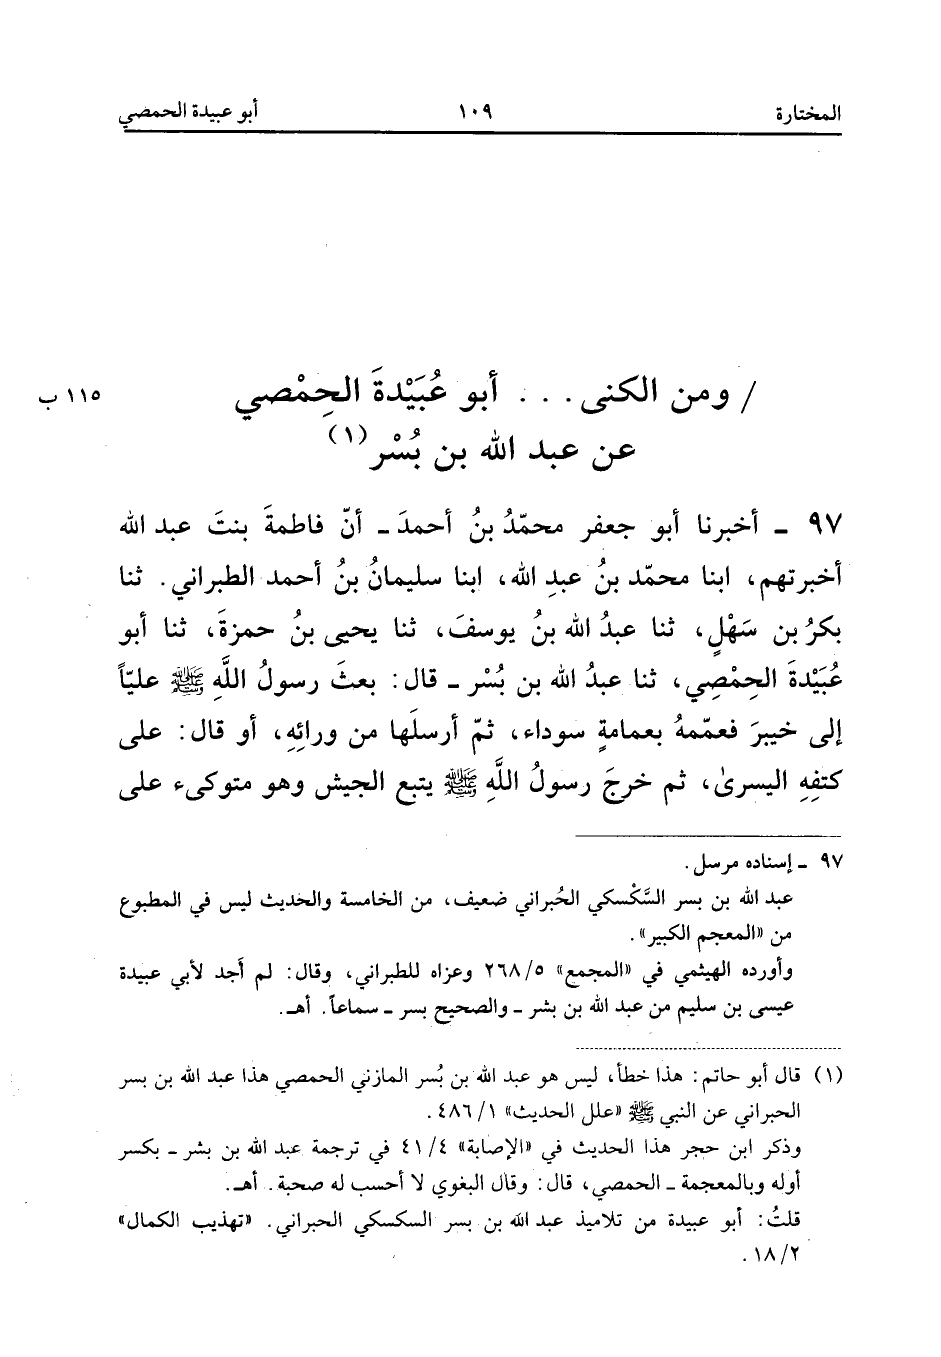 المختارة ١٠٩ أبو عبيدة الحمصي
/ ومن الكنى . . . أبو عُبَيْدةَ الحِمْصي ١١٥ ب
عن عبد الله بن بُسْر(١)
٩٧ ـ أخبرنا أبو جعفر محمّدُ بنُ أحمدَ ـ أنّ فاطمةَ بنتَ عبد الله
أخبرتهم، ابنا محمّد بنُ عبدِ الله، ابنا سليمانُ بنُ أحمد الطبراني. ثنا
بكرُ بن سَهْلٍ، ثنا عبدُ الله بنُ يوسفَ، ثنا يحيى بنُ حمزةَ، ثنا أبو
عُبَيْدةَ الحِمْصِي، ثنا عبدُ الله بن بُسْر ـ قال: بعثَ رسولُ اللَّهِ ﷺ عليّاً
إلى خيبرَ فعمّمهُ بعمامةٍ سوداء، ثمّ أرسلَها من ورائِهِ، أو قال: على
كتفِهِ اليسرىٰ، ثم خرجَ رسولُ اللَّهِ ﷺ يتبع الجيش وهو متوكىء على
٩٧ ـ إسناده مرسل.
عبد الله بن بسر السَّكْسكي الحُبراني ضعيف، من الخامسة والحديث ليس في المطبوع
من «المعجم الكبير».
وأورده الهيثمي في «المجمع» ٢٦٨/٥ وعزاه للطبراني، وقال: لم أجد لأبي عبيدة
عيسى بن سليم من عبد الله بن بشر ـ والصحيح بسر ـ سماعاً. أهـ.
(١) قال أبو حاتم: هذا خطأ، ليس هو عبد الله بن بُسر المازني الحمصي هذا عبد الله بن بسر
الحبراني عن النبي ﷺ «علل الحديث» ٤٨٦/١.
وذكر ابن حجر هذا الحديث في «الإصابة» ٤١/٤ في ترجمة عبد الله بن بشر ـ بكسر
أوله وبالمعجمة ـ الحمصي، قال: وقال البغوي لا أحسب له صحبة. أهـ.
قلتُ: أبو عبيدة من تلاميذ عبد الله بن بسر السكسكي الحبراني. «تهذيب الكمال»
١٨/٢.